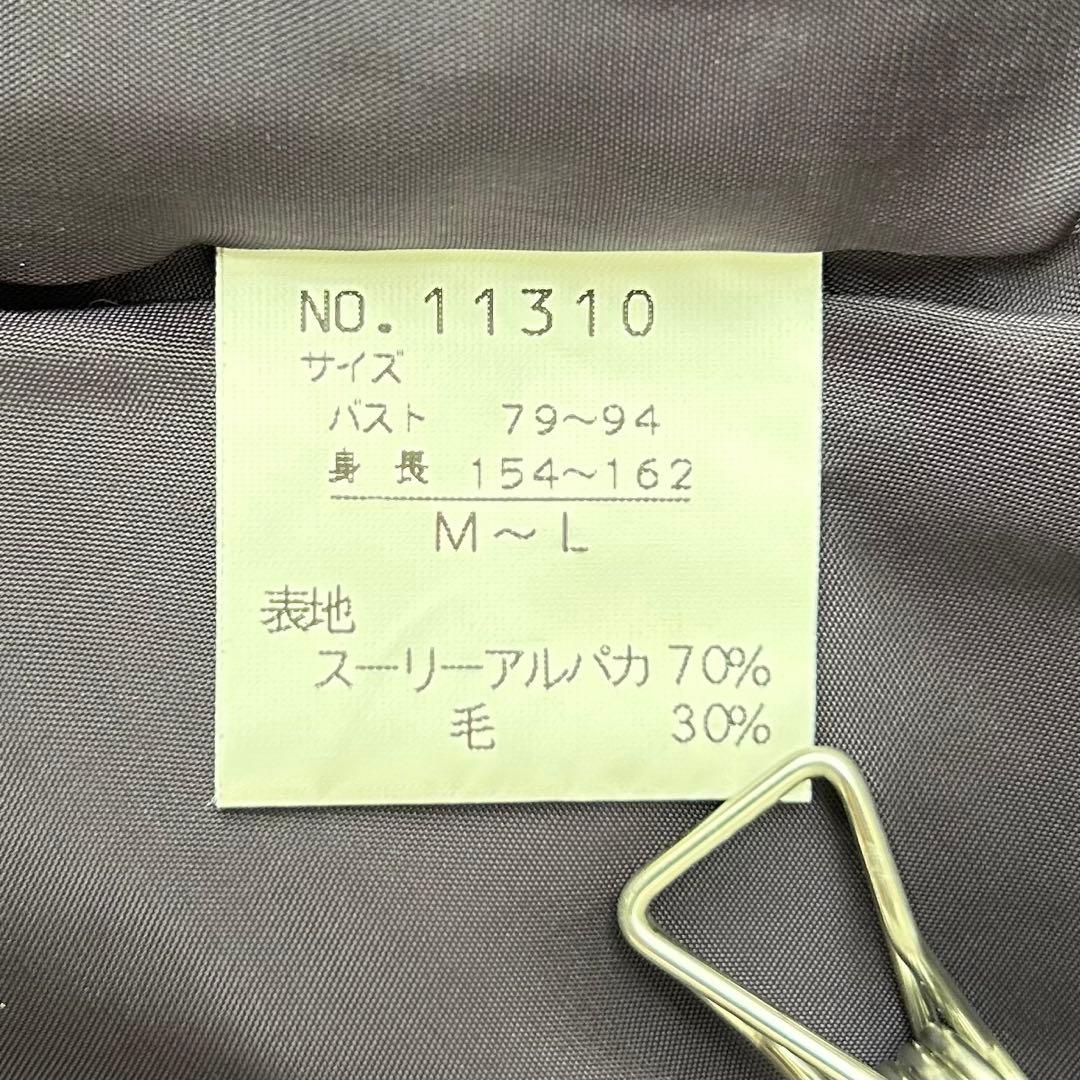 NO.11310
サイズ
バスト 79～94
身長 154～162
M～L
表地
スーリーアルパカ 70%
毛 30%